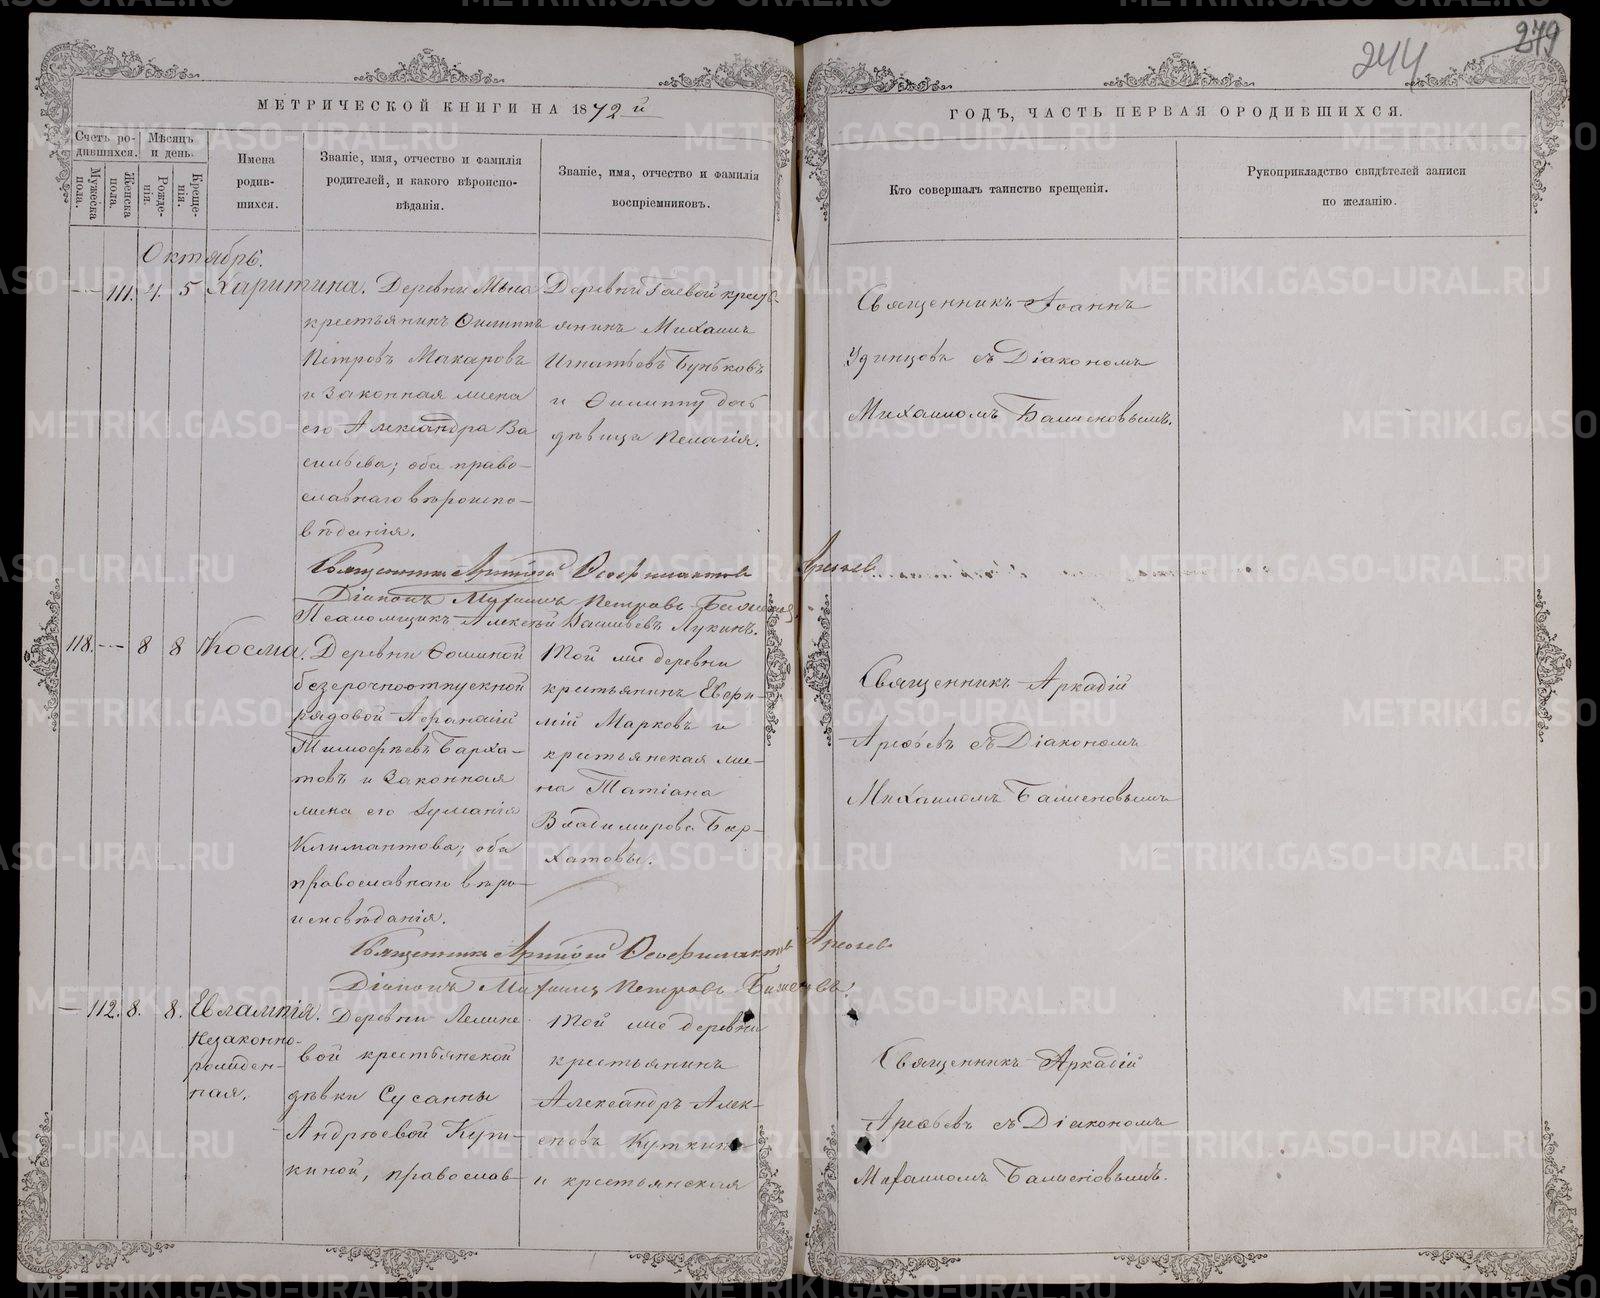 244
279
МЕТРИЧЕСКОЙ КНИГИ НА 1872 й
ГОДЪ, ЧАСТЬ ПЕРВАЯ О РОДИВШИХСЯ.
Счетъ ро-
дившихся.
Мѣсяцъ
и день.
Мужеска
пола.
Женска
пола.
Рожде-
нія.
Креще-
нія.
Имена
родив-
шихся.
Званіе, имя, отчество и фамилія
родителей, и какого вѣроиспо-
вѣданія.
Званіе, имя, отчество и фамилія
воспріемниковъ.
Кто совершалъ таинство крещенія.
Рукоприкладство свидѣтелей записи
по желанію.
Октябрь.
— 111. 4. 5 Харитина.
Деревни
крестьянинъ Филиппъ
Петровъ Макаровъ
и законная жена
его Александра Ва
сильева; оба право-
славнаго вѣроиспо-
вѣданія.
Деревни Гаевой крест-
янинъ Михаилъ
Игнатьевъ Буньковъ
и Филиппу дочь
дѣвица Пелагія.
Священникъ Іоаннъ
Удинцовъ съ Діакономъ
Михаиломъ Баженовымъ.
Священникъ Аркадій Феофилактовъ
Діаконъ Михаилъ Петровъ Баженовъ
Псаломщикъ Алексѣй Васильевъ Лукинъ.
118. — 8 8 Косма.
Деревни Фоминой
безсрочноотпускной
рядовой Афанасій
Тимофѣевъ Барха-
товъ и законная
жена его
Климантова; оба
православнаго вѣро-
исповѣданія.
Той же деревни
крестьянинъ Ефи-
мій Марковъ и
крестьянская же-
на Татіана
Владимирова Бар-
хатовы.
Священникъ Аркадій
Арефьевъ съ Діакономъ
Михаиломъ Баженовымъ
Священникъ Аркадій Феофилактовъ Арефьевъ
Діаконъ Михаилъ Петровъ Баженовъ.
— 112. 8. 8. Евлампія.
Незаконно-
рожден-
ная.
Деревни
вой крестьянской
дѣвки Сусанны
Андреевой Кут-
киной, православ-
Той же деревни
крестьянинъ
Александръ Алек-
сѣевъ Куткинъ
и крестьянская
Священникъ Аркадій
Арефьевъ съ Діакономъ
Михаиломъ Баженовымъ.
METRIKI.GASO-URAL.RU